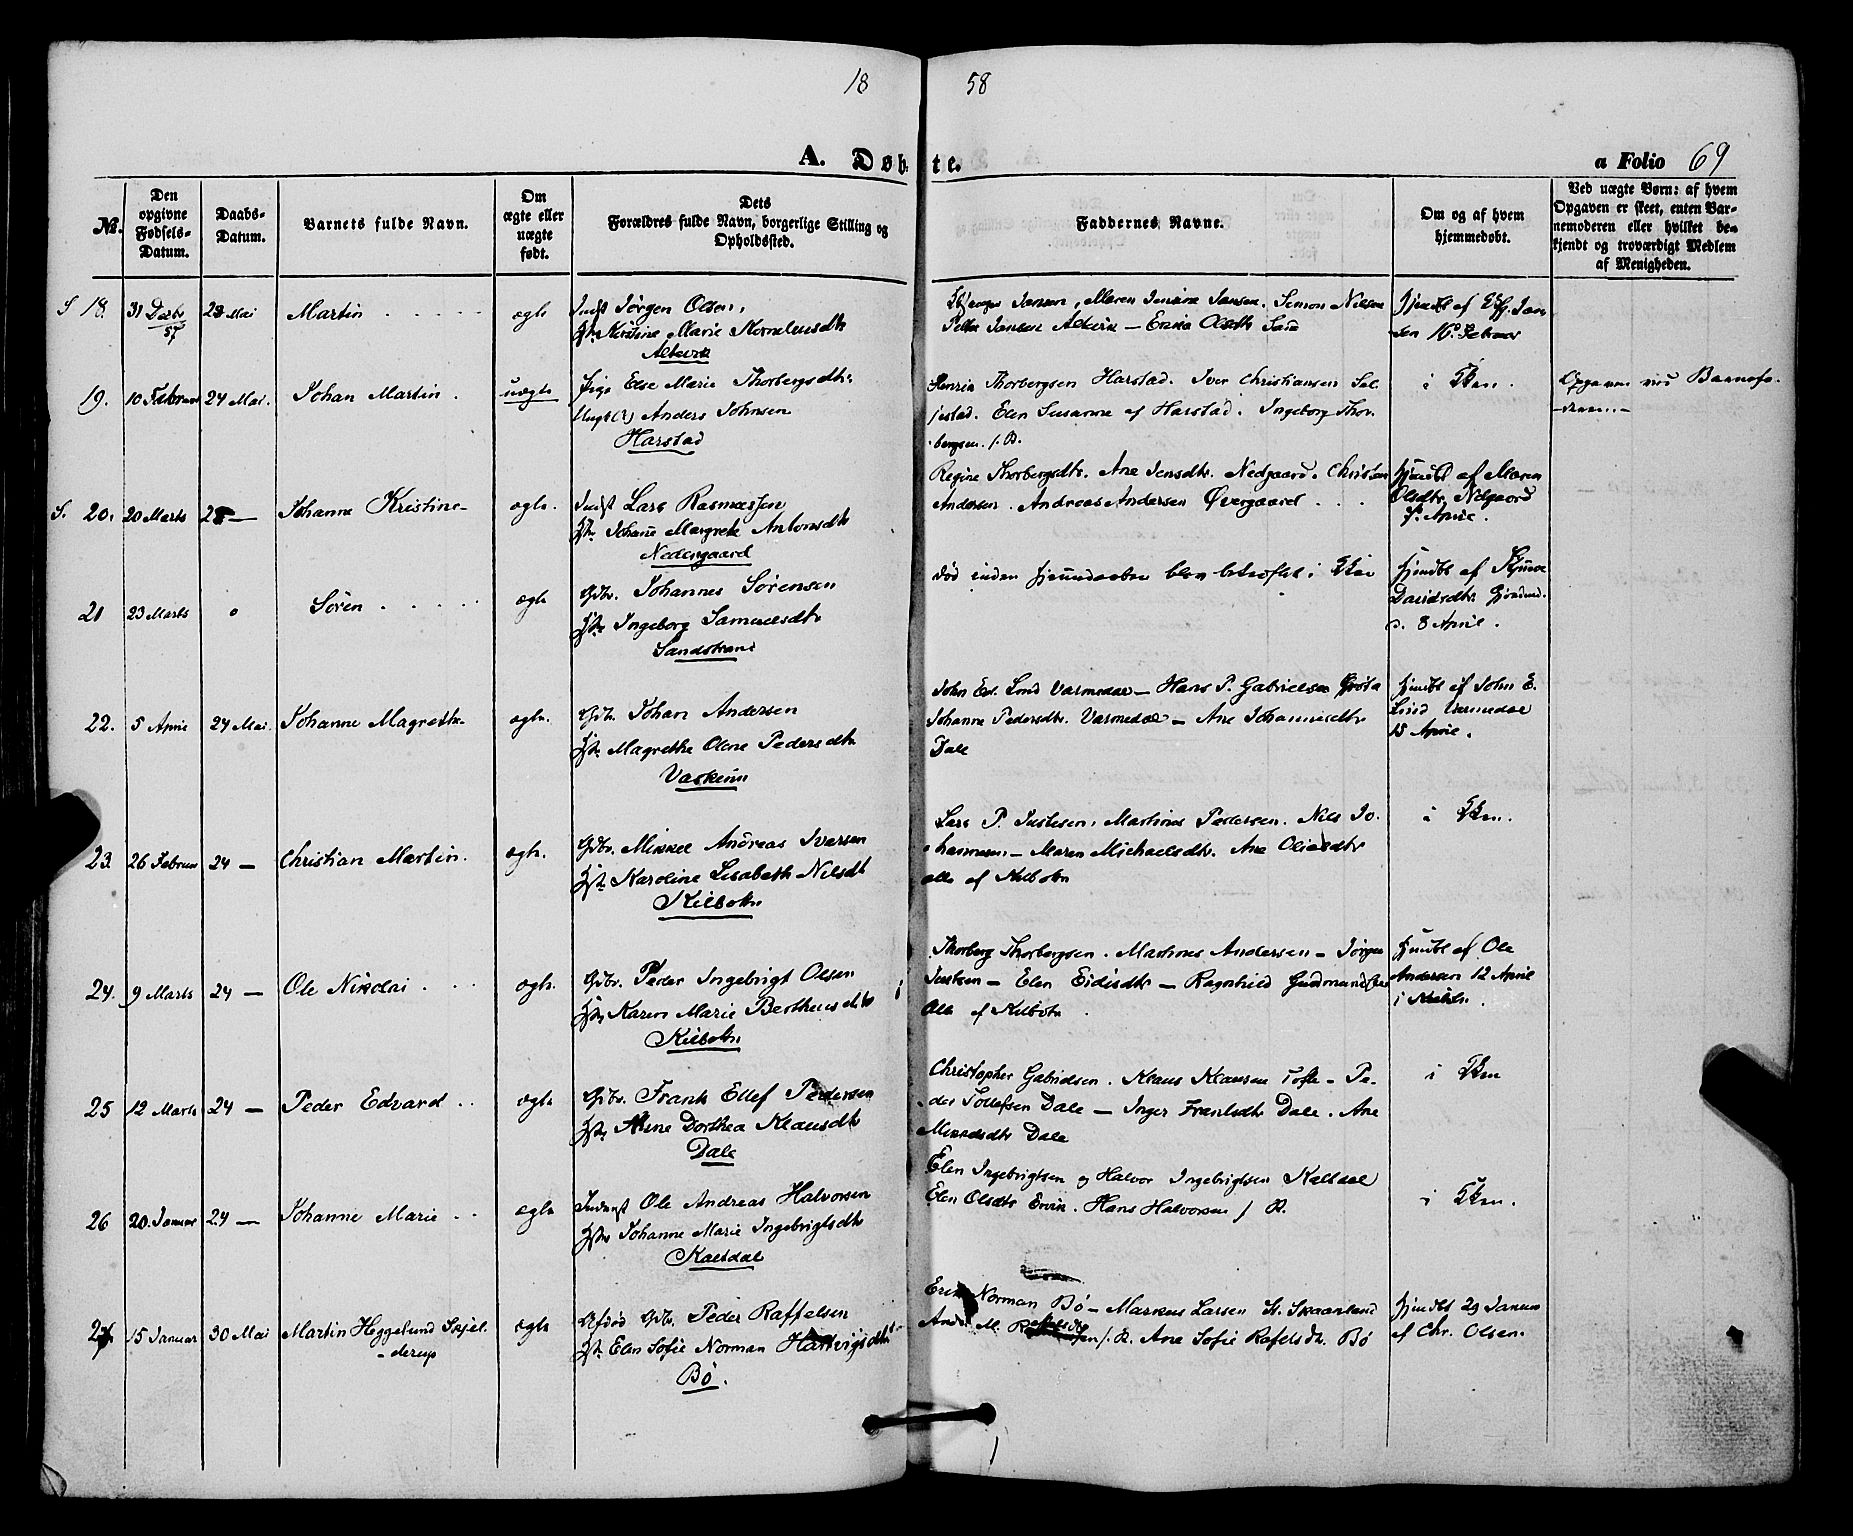 18 58
A. Døbte.
a Folio 69
No.
Den opgivne Fødsels-Datum.
Daabs-Datum.
Barnets fulde Navn.
Om ægte eller uægte født.
Dets Forældres fulde Navn, borgerlige Stilling og Opholdssted.
Faddernes Navne.
Om og af hvem hjemmedøbt.
Ved uægte Børn: af hvem Opgaven er skeet, enten Barnemoderen eller hvilket bekjendt og troværdigt Medlem af Menigheden.
S 18. 31 Decbr 57 Mai Martin ægte
Jørgen Olsen,
Kristine Marie Korneliusdtr
Jansen, Maren Jansen. Simon Nilsen
Peter Jansen Altevik — Erika Olsdtr
Hjemdbt af
19. 10 Februar 24 Mai. Johan Martin uægte
Pige Else Marie Thorbergsdtr
Ungk(?) Anders Johnsen
Harstad
Thorbergsen Harstad. Iver Christiansen Sel-
jestad. Elen Susanne af Harstad. Ingeborg Thor-
bergsen. /: B.
i Kken.
Opgaven ved Barnefa-
deren
S. 20. 20 Marts 25 — Johanne Kristine ægte.
Indst Lars Rasmussen
Johanne Margrete Antonsdtr
Nedergaard
Regine Thorbergsdtr. Ane Jensdtr. Nedgaard. Christen
Andersen. Andreas Andersen Øvergaard
Hjemdbt af Maren
Olsdtr. Nedgaard
April.
21 23 Marts 0 Søren ægte
Gdbr. Johannes Sørensen
Ingeborg Samuelsdtr
Sandstrand
død inden hjemmedaaben blev bekræftet i Kken
Hjemdbt af
Davidsdtr.
d. 8 April.
22. 5 April 24 Mai. Johanne Magrethe ægte.
Gdbr. Johan Andersen
Magrethe Oline Pedersdtr
John Ed. Lind Varmedal — Hans P. Gabrielsen Grøta
Johanne Pedersdtr. Varmedal — Ane Johannesdtr
Dale
Hjemdbt af John E.
Lind Varmedal
15 April.
23. 26 Februar 24 — Christian Martin. ægte.
Gdbr. Mikkel Andreas Iversen
Karoline Lisabeth Nilsdtr
Kilbotn
Lars P. Justisen. Martines Pedersen. Nils Jo-
hannesen — Maren Michaelsdtr. Ane Oliasdtr
alle af Kilbotn
i Kken.
24. 9 Marts 24 — Ole Nikolai ægte.
Gdbr. Peder Ingebrigt Olsen
Karen Marie Bertheusdtr
Kilbotn
Thorberg Thorbergsen. Martines Andersen — Jørgen
Justisen — Elen Eidisdtr — Ragnhild
Alle af Kilbotn
Hjemdbt af Ole
Andersen 12 April
i Kilbotn.
25 12 Marts 24 — Peder Edvard ægte
Gdbr. Frants Ellef Pedersen
Anne Dorthea Klausdtr
Dale
Christopher Gabrielsen. Klaus Klausen Tofte — Pe-
der Tollefsen Dale — Inger Frantsdtr Dale. Ane
Mikkelsdtr Dale
i Kken
26 20. Januar 24 — Johanne Marie ægte
Inderst Ole Andreas Halvorsen
Johanne Marie Ingebrigtsdtr
Kaltdal
Elen Ingebrigtsen og Halvor Ingebrigtsen Kaltdal
Elen Olsdtr Ervik. Hans Halvorsen /: B.
i Kken.
27. 15 Januar 30 Mai Martin Heggelund Skjel-
derup ægte
Afdød Gdbr. Peder Raffelsen
Elen Sofie Norman Hartvigsdtr
Bø.
Erik Norman Bø — Markus Larsen St. Skaanland
/: B. Ane Sofie Rafelsdtr. Bø
Hjemdbt 29 Januar
af Chr. Olsen.